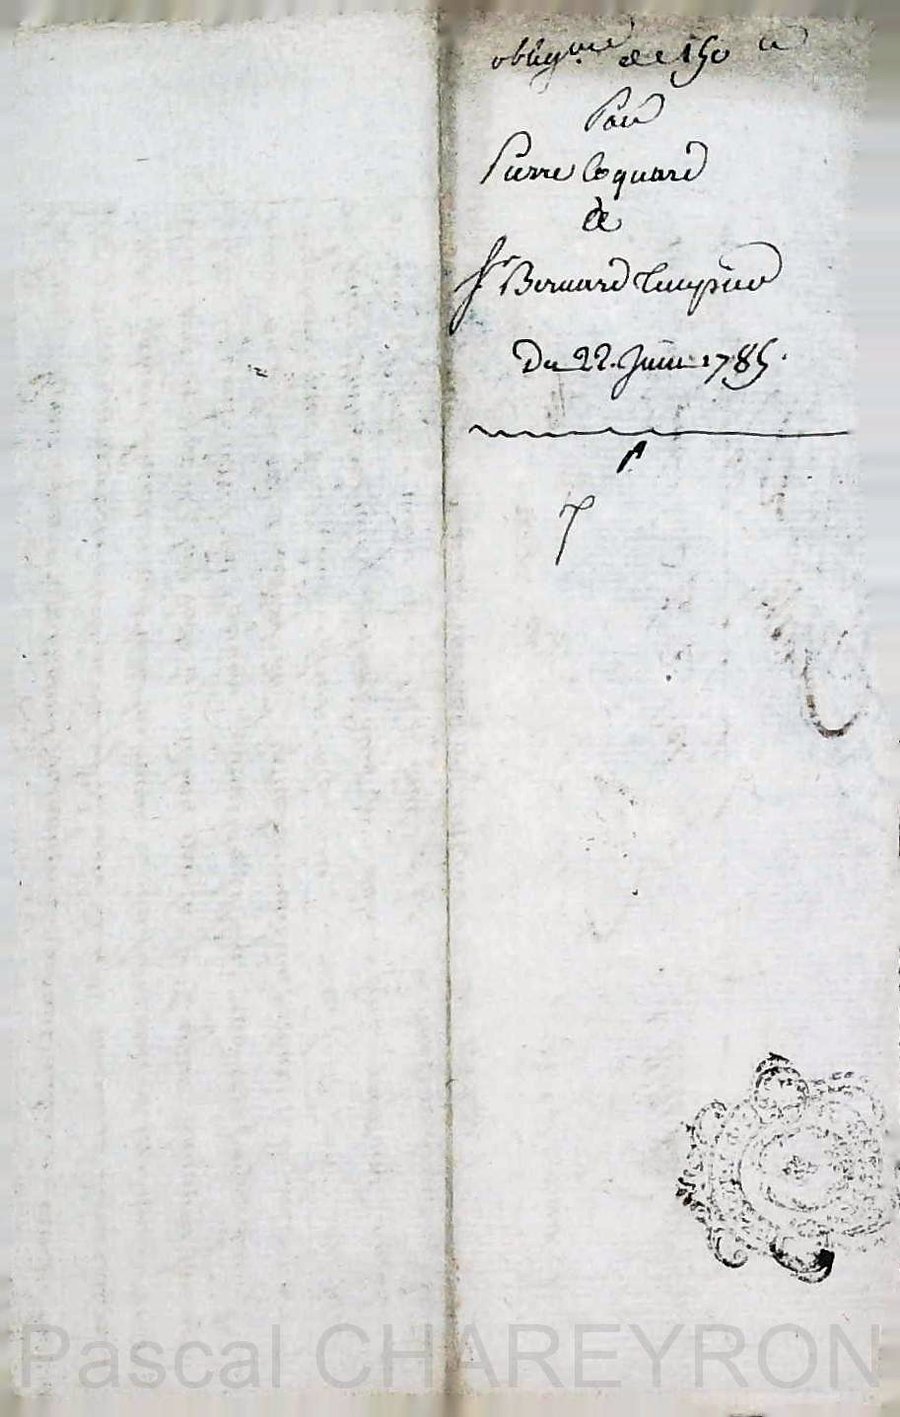 oblig.on de 150 #
Pour
Pierre Coquard
de
St Bernard
Du 22. Juin 1785.
7
Pascal CHAREYRON